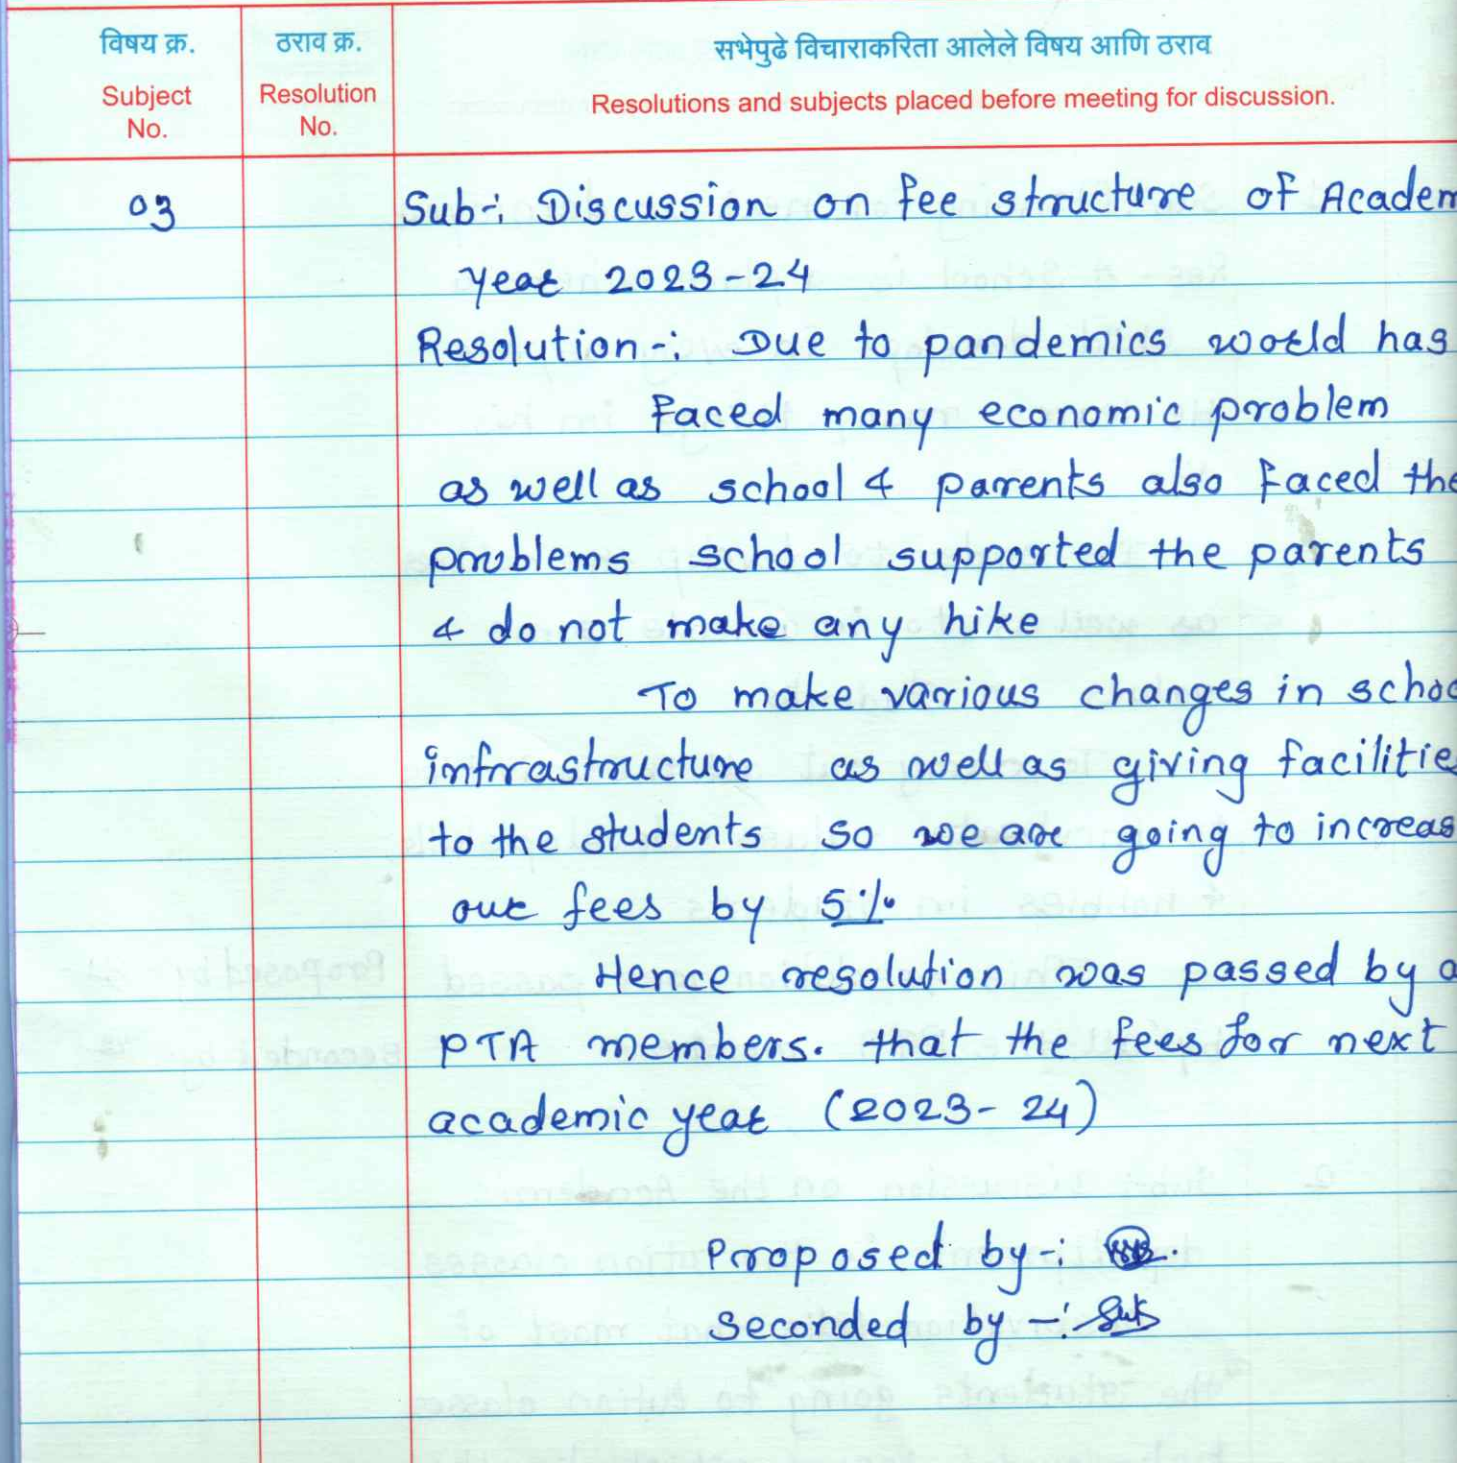 विषय क्र. ठराव क्र. सभेपुढे विचाराकरिता आलेले विषय आणि ठराव
Subject No. Resolution No. Resolutions and subjects placed before meeting for discussion.
03 Sub-: Discussion on fee structure of Academ
year 2023-24
Resolution-: Due to pandemics world has
faced many economic problem
as well as school & parents also faced the
problems school supported the parents
& do not make any hike
To make various changes in schoo
infrastructure as well as giving facilitie
to the students so we are going to increas
our fees by 5%
Hence resolution was passed by a
PTA members. that the fees for next
academic year (2023-24)
Proposed by-:
seconded by-: